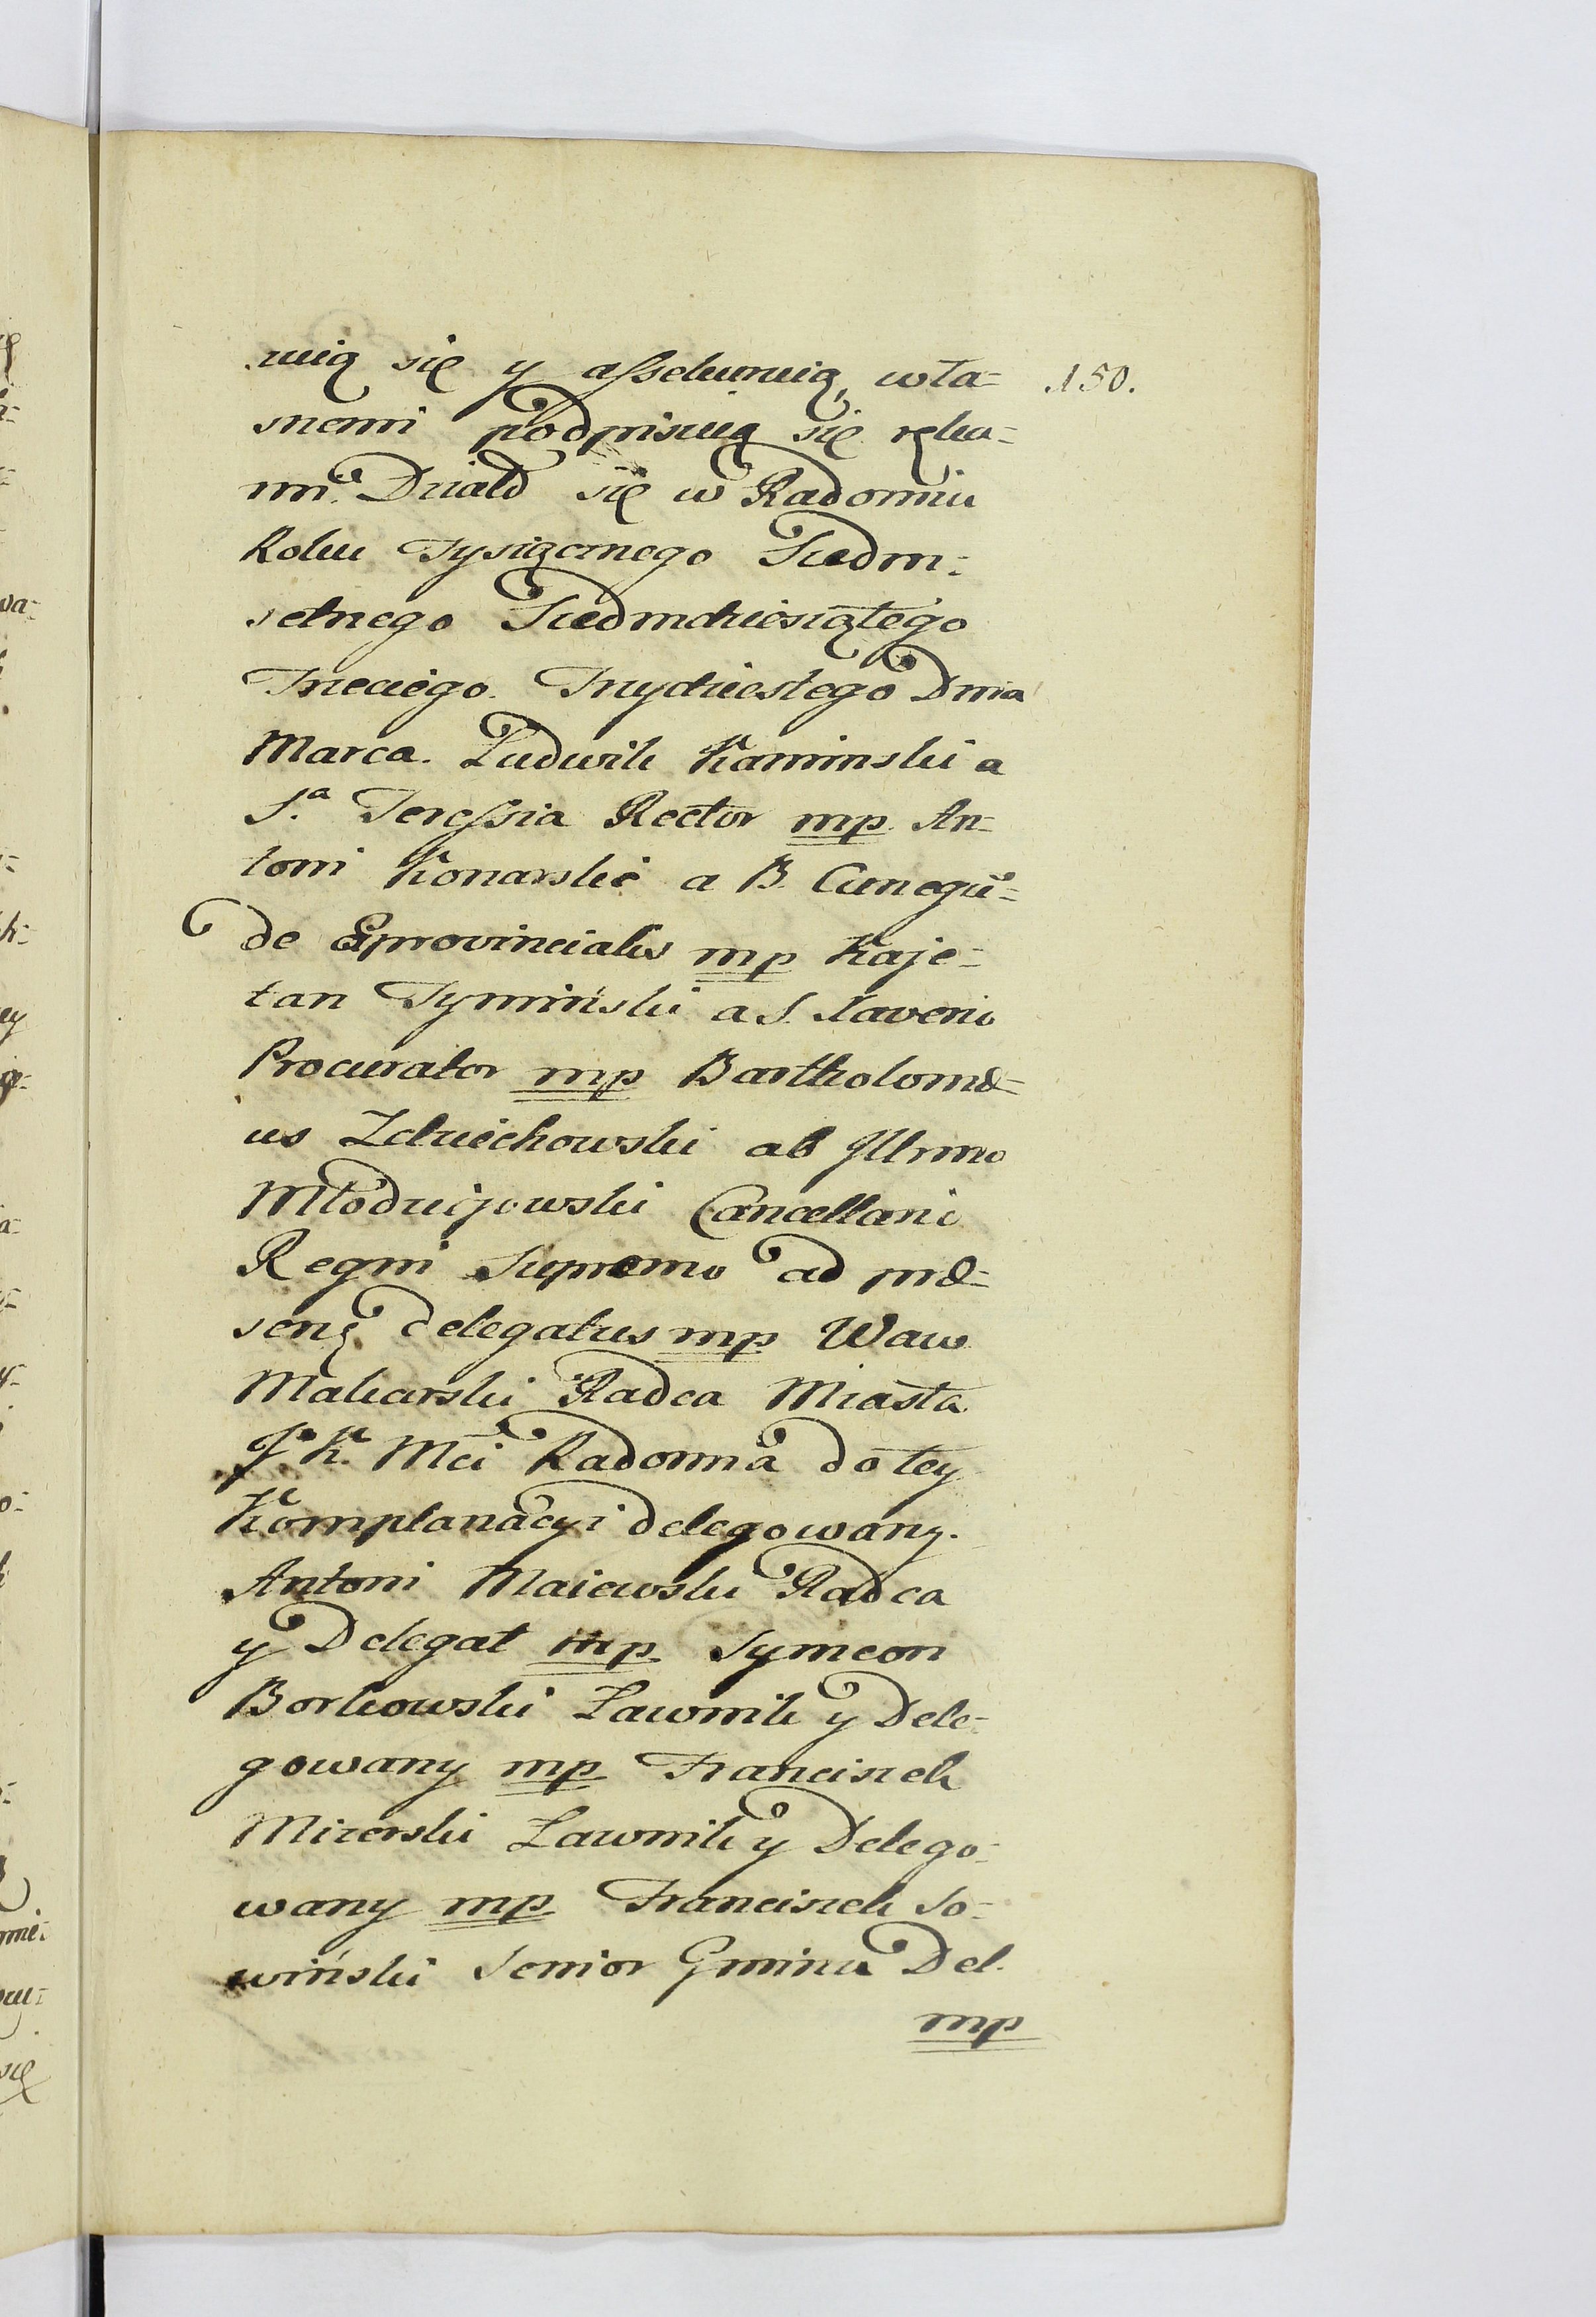 150.
zuią się y aſsekuruią, wła=
snemi podpisuią się ręka=
mi. Działo się w Radomiu
Roku Tysiącznego Siedm=
setnego Siedmdziesiątego
Trzeciego. Trzydziestego Dnia
Marca. Ludwik Kaminski a
S.a Tereſsia Rector mp. An=
toni Konarski a B. Cunegū=
de Exprovincialis mp Kaje=
tan Tymiński a S. Xaverio
Procurator mp Bartholomæ=
us Zdziechowski ab Illmo
Młodziejowski Cancellario
Regni Supremo ad præ=
sens delegatus mp Waw
Makarski Radca Miasta
J. K. Mci Radomia do tey
Komplanacyi delegowany.
Antoni Maiewski Radca
y Delegat mp. Symeon
Borkowski Ławnik y Dele=
gowany mp Franciszek
Mizerski Ławnik y Delego=
wany mp Franciszek So=
wiński Senior Gminu Del.
mp